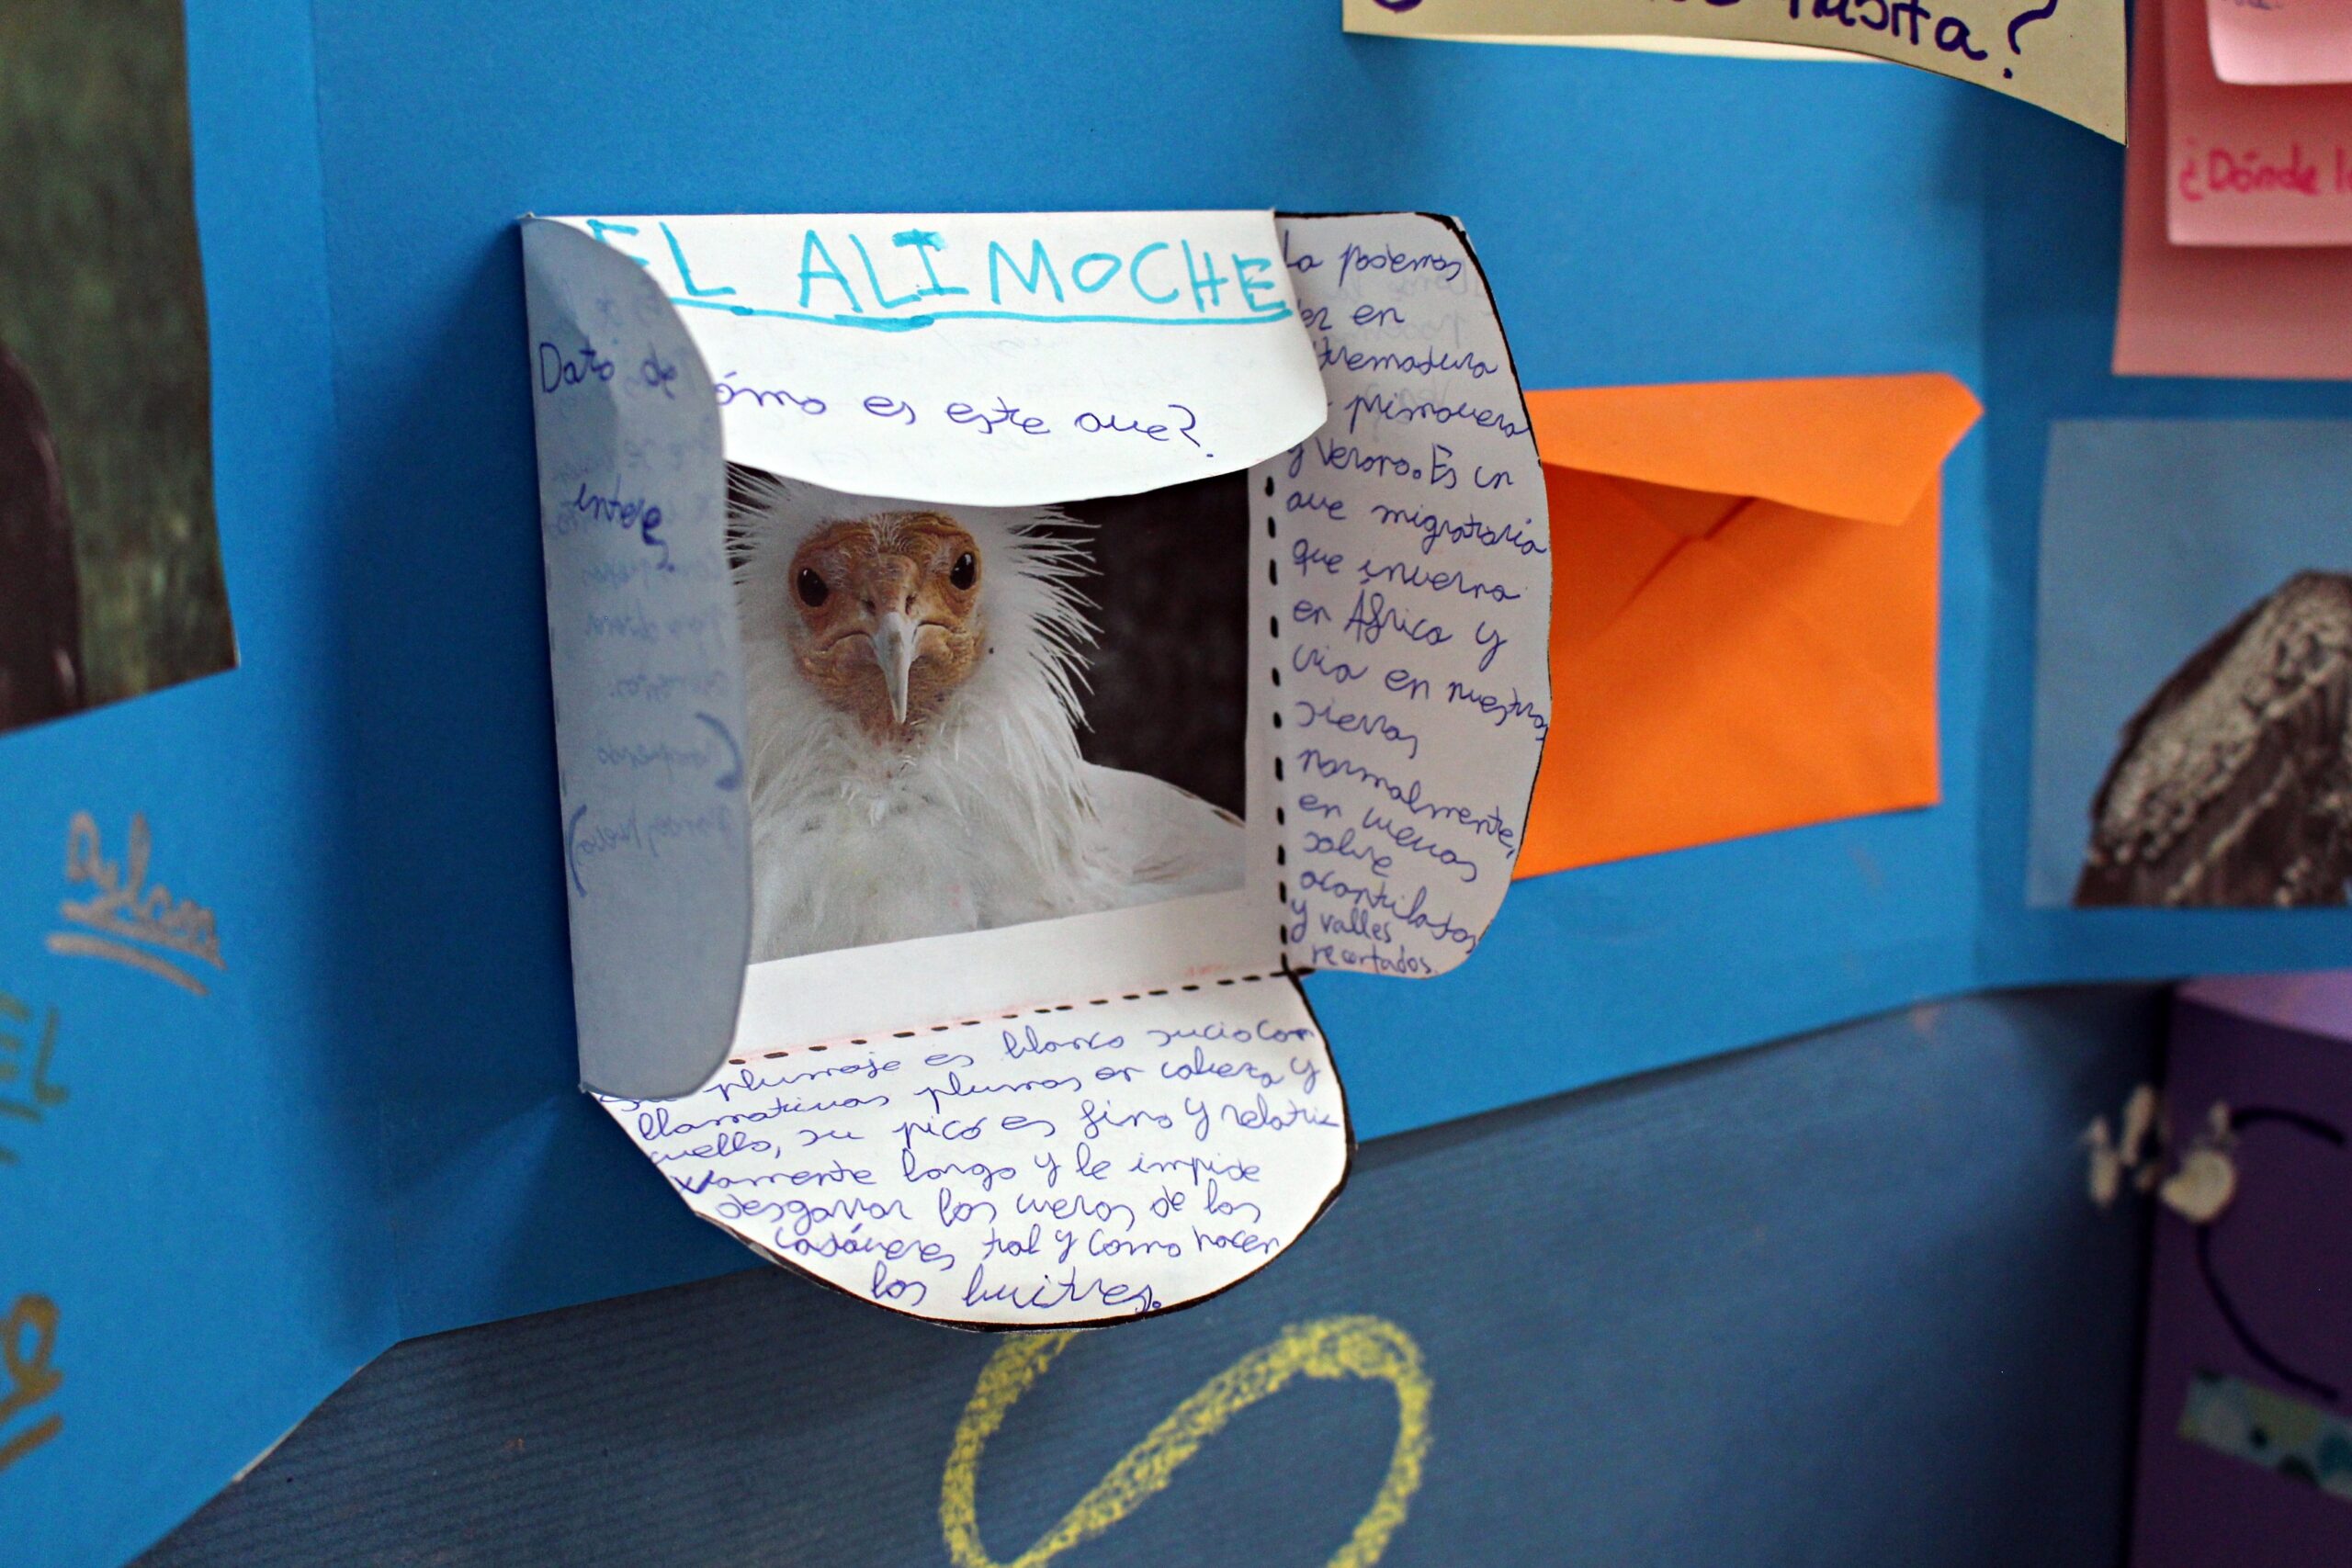 habita?
¿Dónde
EL ALIMOCHE
ómo es este ave?
Dato de
interé
La podemos
er en
tremadura
primavera
y verano. Es un
ave migratoria
que inverna
en África y
cria en nuestras
sierras
normalmente,
en cuevas
sobre
acantilados
y valles
recortados.
Su plumaje es blanco sucio con
llamativas plumas en cabeza y
cuello, su pico es fino y relati-
vamente largo y le impide
desgarrar los cueros de los
cadáveres tal y como hacen
los buitres.